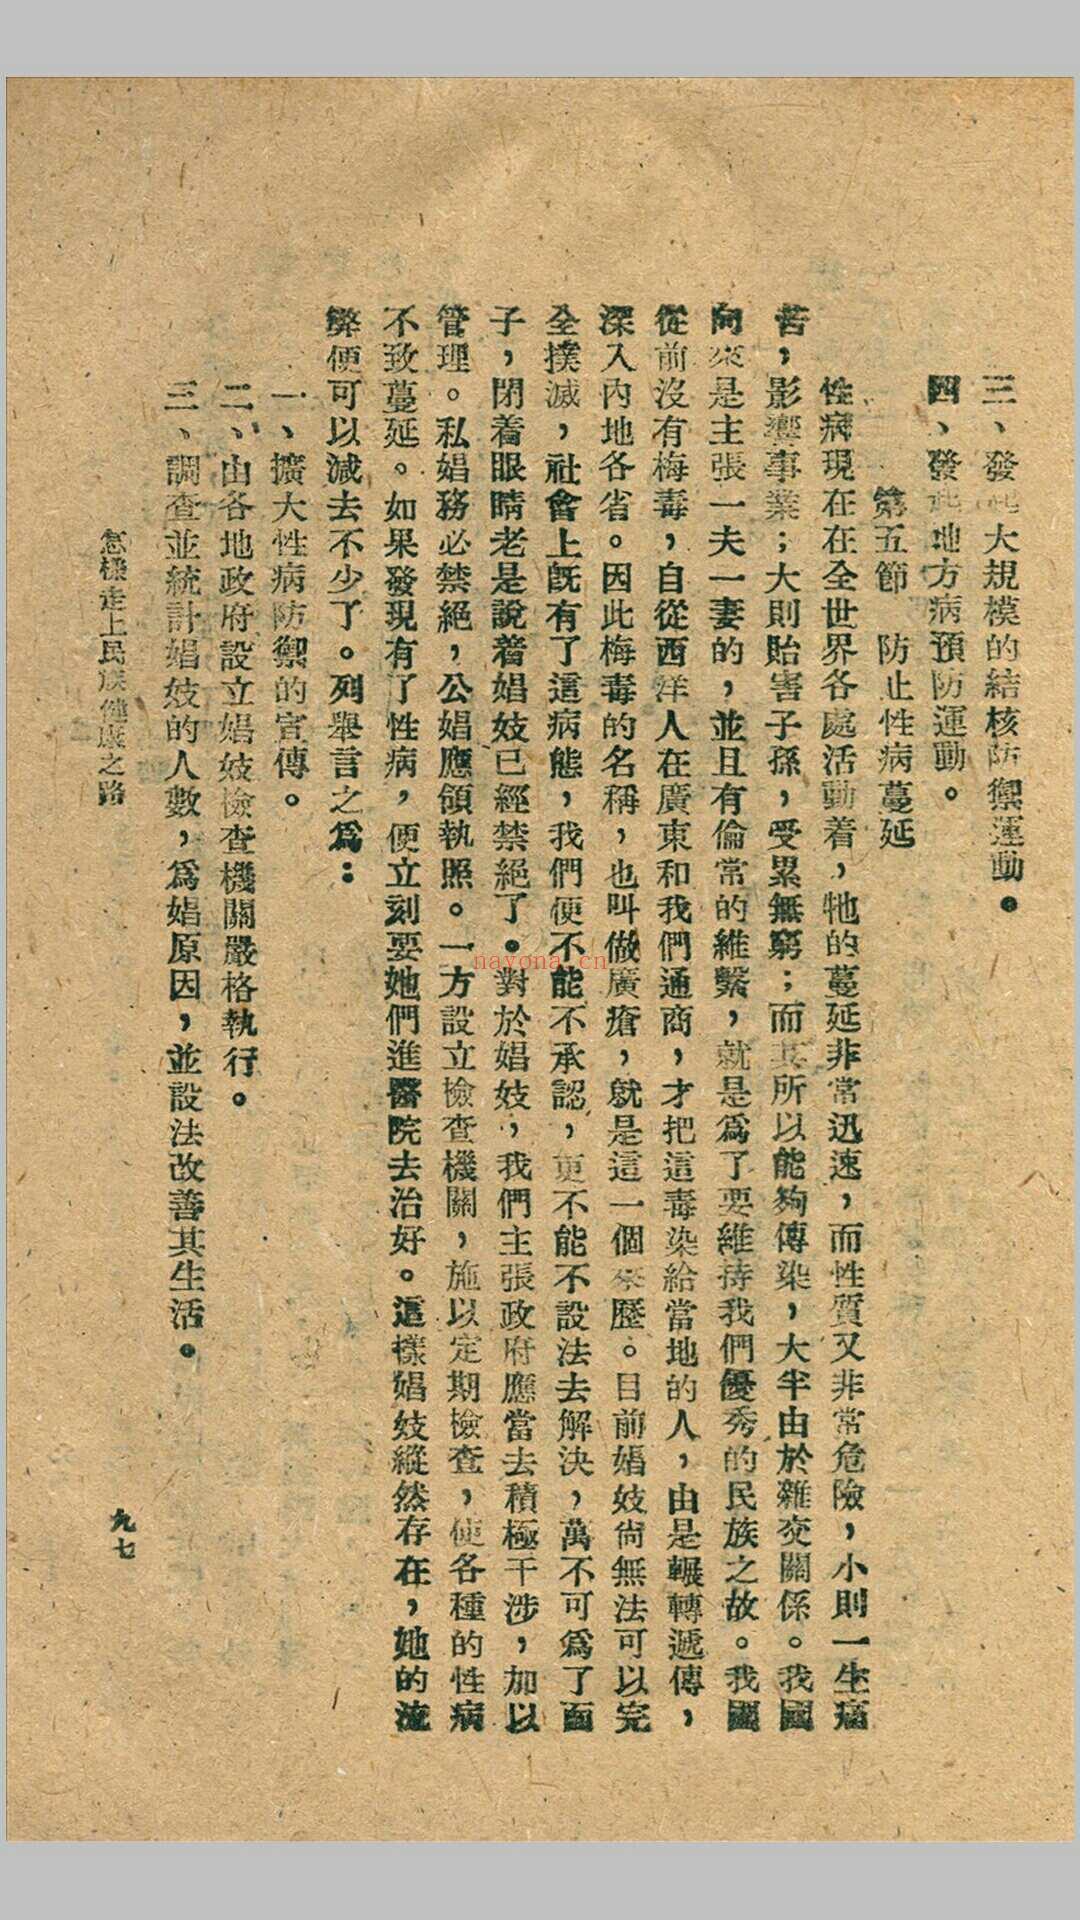 三、發起大規模的結核防禦運動。
四、發起地方病預防運動。
第五節　防止性病蔓延
性病現在在全世界各處活動着，牠的蔓延非常迅速，而性質又非常危險，小則一生痛
苦，影響事業；大則貽害子孫，受累無窮；而其所以能夠傳染，大半由於雜交關係。我國
向來是主張一夫一妻的，並且有倫常的維繫，就是爲了要維持我們優秀的民族之故。我國
從前沒有梅毒，自從西洋人在廣東和我們通商，才把這毒染給當地的人，由是輾轉遞傳，
深入內地各省。因此梅毒的名稱，也叫做廣瘡，就是這一個來歷。目前娼妓尙無法可以完
全撲滅，社會上旣有了這病態，我們便不能不承認，更不能不設法去解決，萬不可爲了面
子，閉着眼睛老是說着娼妓已經禁絕了。對於娼妓，我們主張政府應當去積極干涉，加以
管理。私娼務必禁絕，公娼應領執照。一方設立檢查機關，施以定期檢查，使各種的性病
不致蔓延。如果發現有了性病，便立刻要她們進醫院去治好。這樣娼妓縱然存在，她的流
弊便可以減去不少了。列舉言之爲：
一、擴大性病防禦的宣傳。
二、由各地政府設立娼妓檢查機關嚴格執行。
三、調查並統計娼妓的人數，爲娼原因，並設法改善其生活。
怎樣走上民族健康之路
九七
nayona.cn